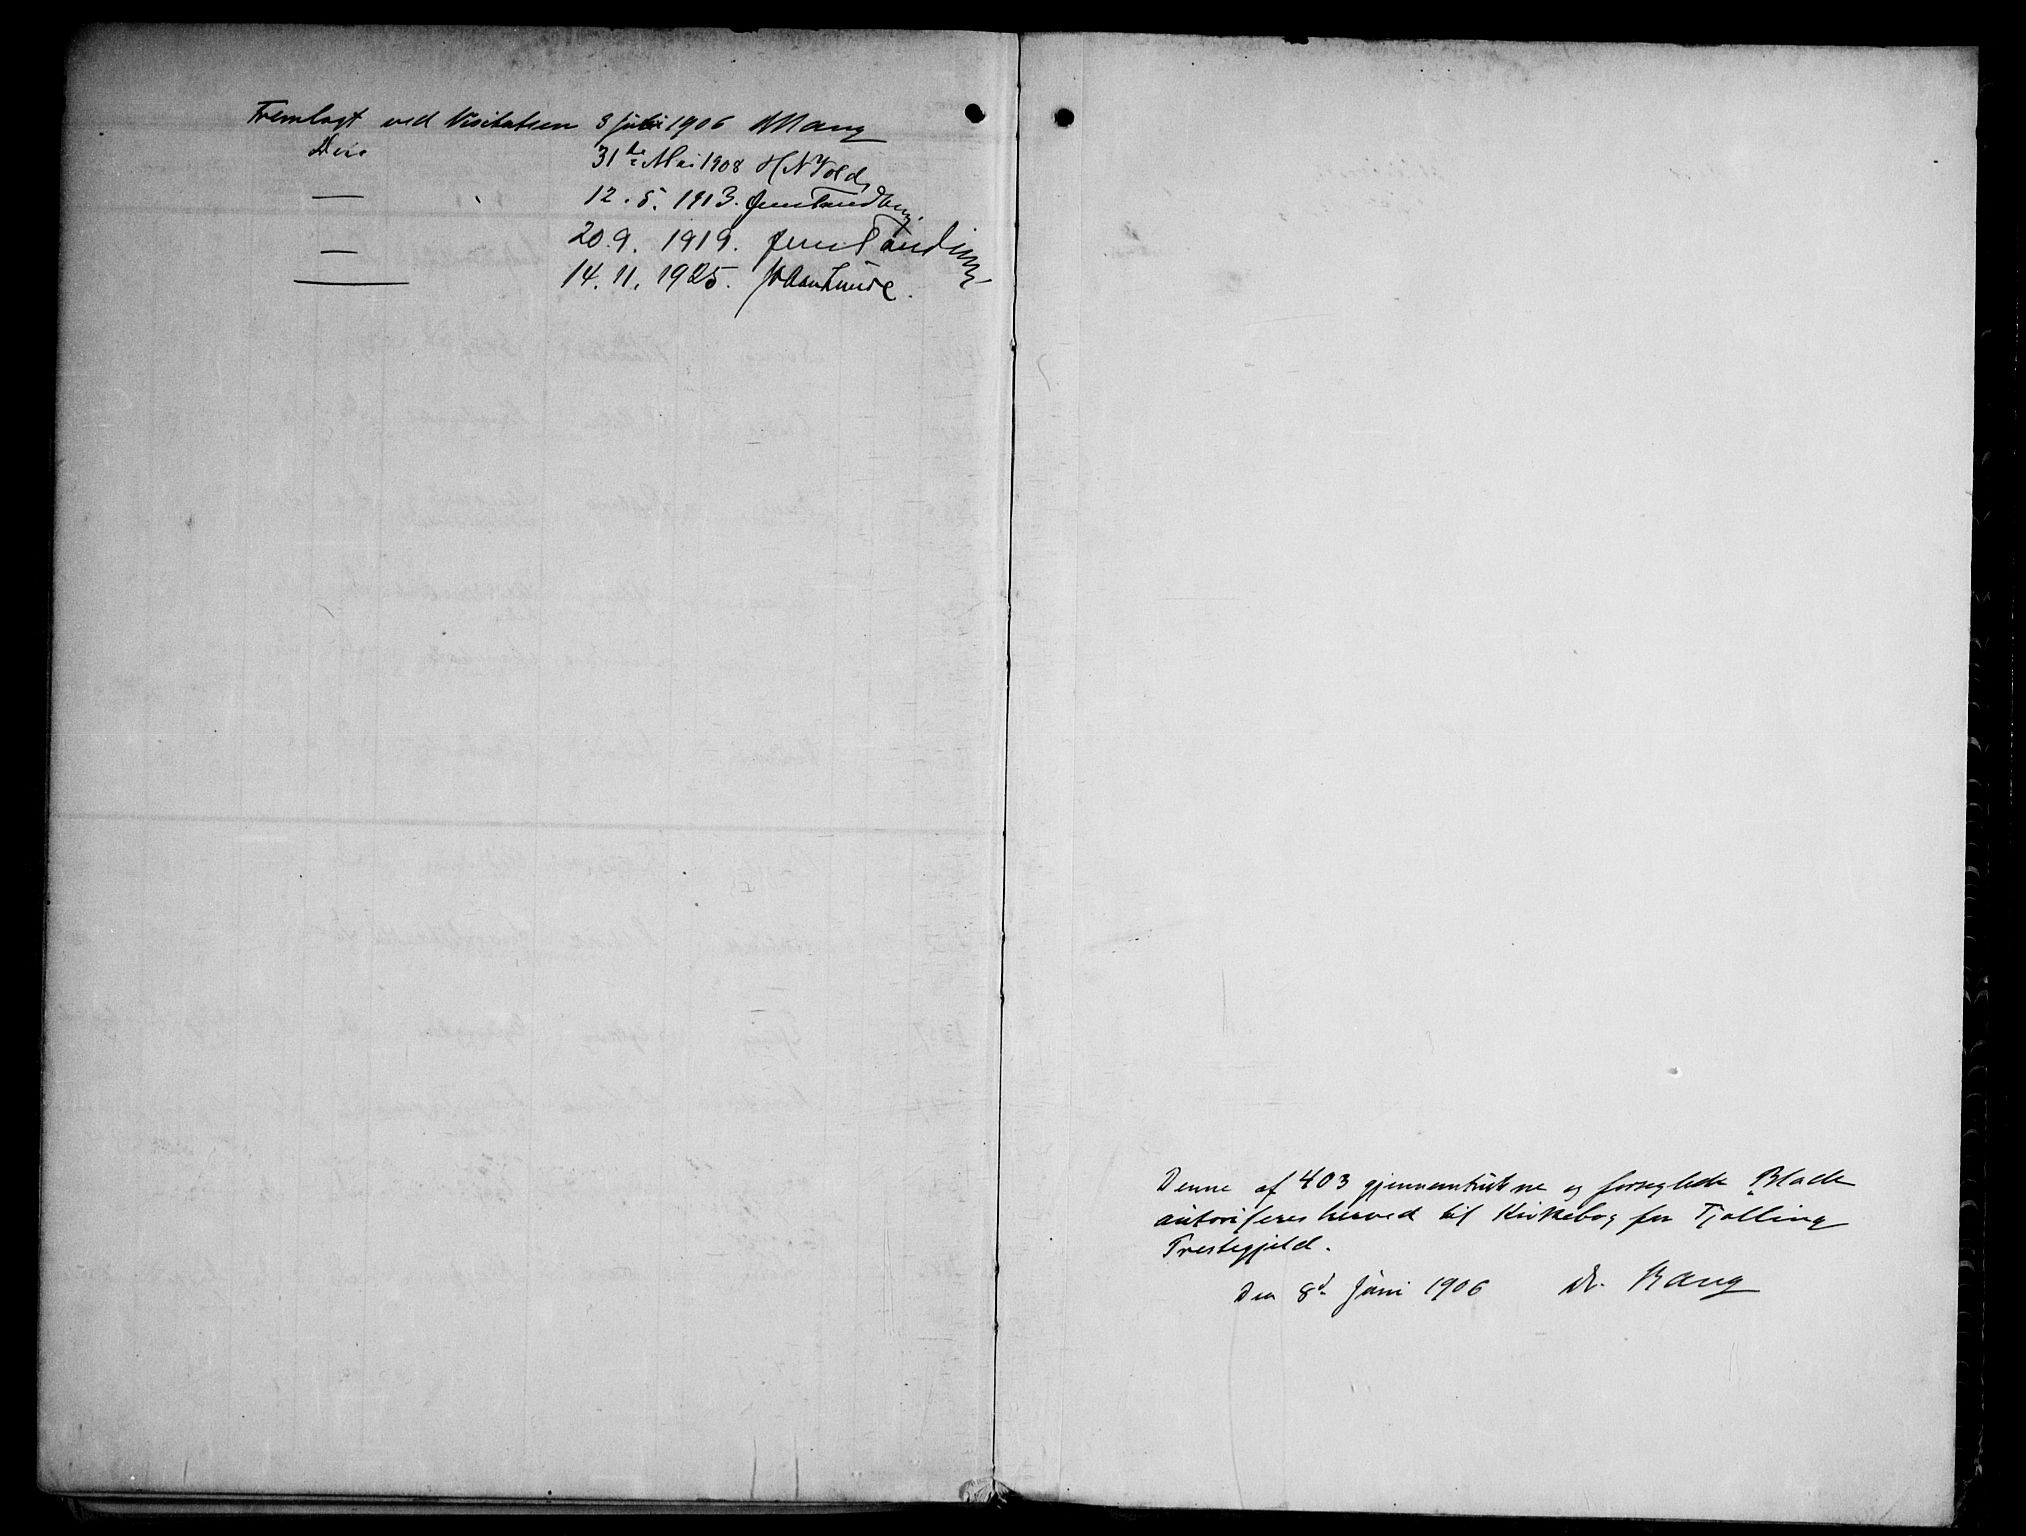 Fremlagt ved Visitatsen 3 juli 1906 Bang
Dito 31te Mai 1908 H N Vold
— 12. 5. 1913. Jens Tandberg.
— 20. 9. 1919. Jens Tandberg
— 14. 11. 1925. Johan Lunde.
Denne af 403 gjennemtrukne og forseglede Blade
autoriseres herved til Kirkebog for Tjølling
Prestegjeld.
Den 8d Juni 1906 Dr. Bang